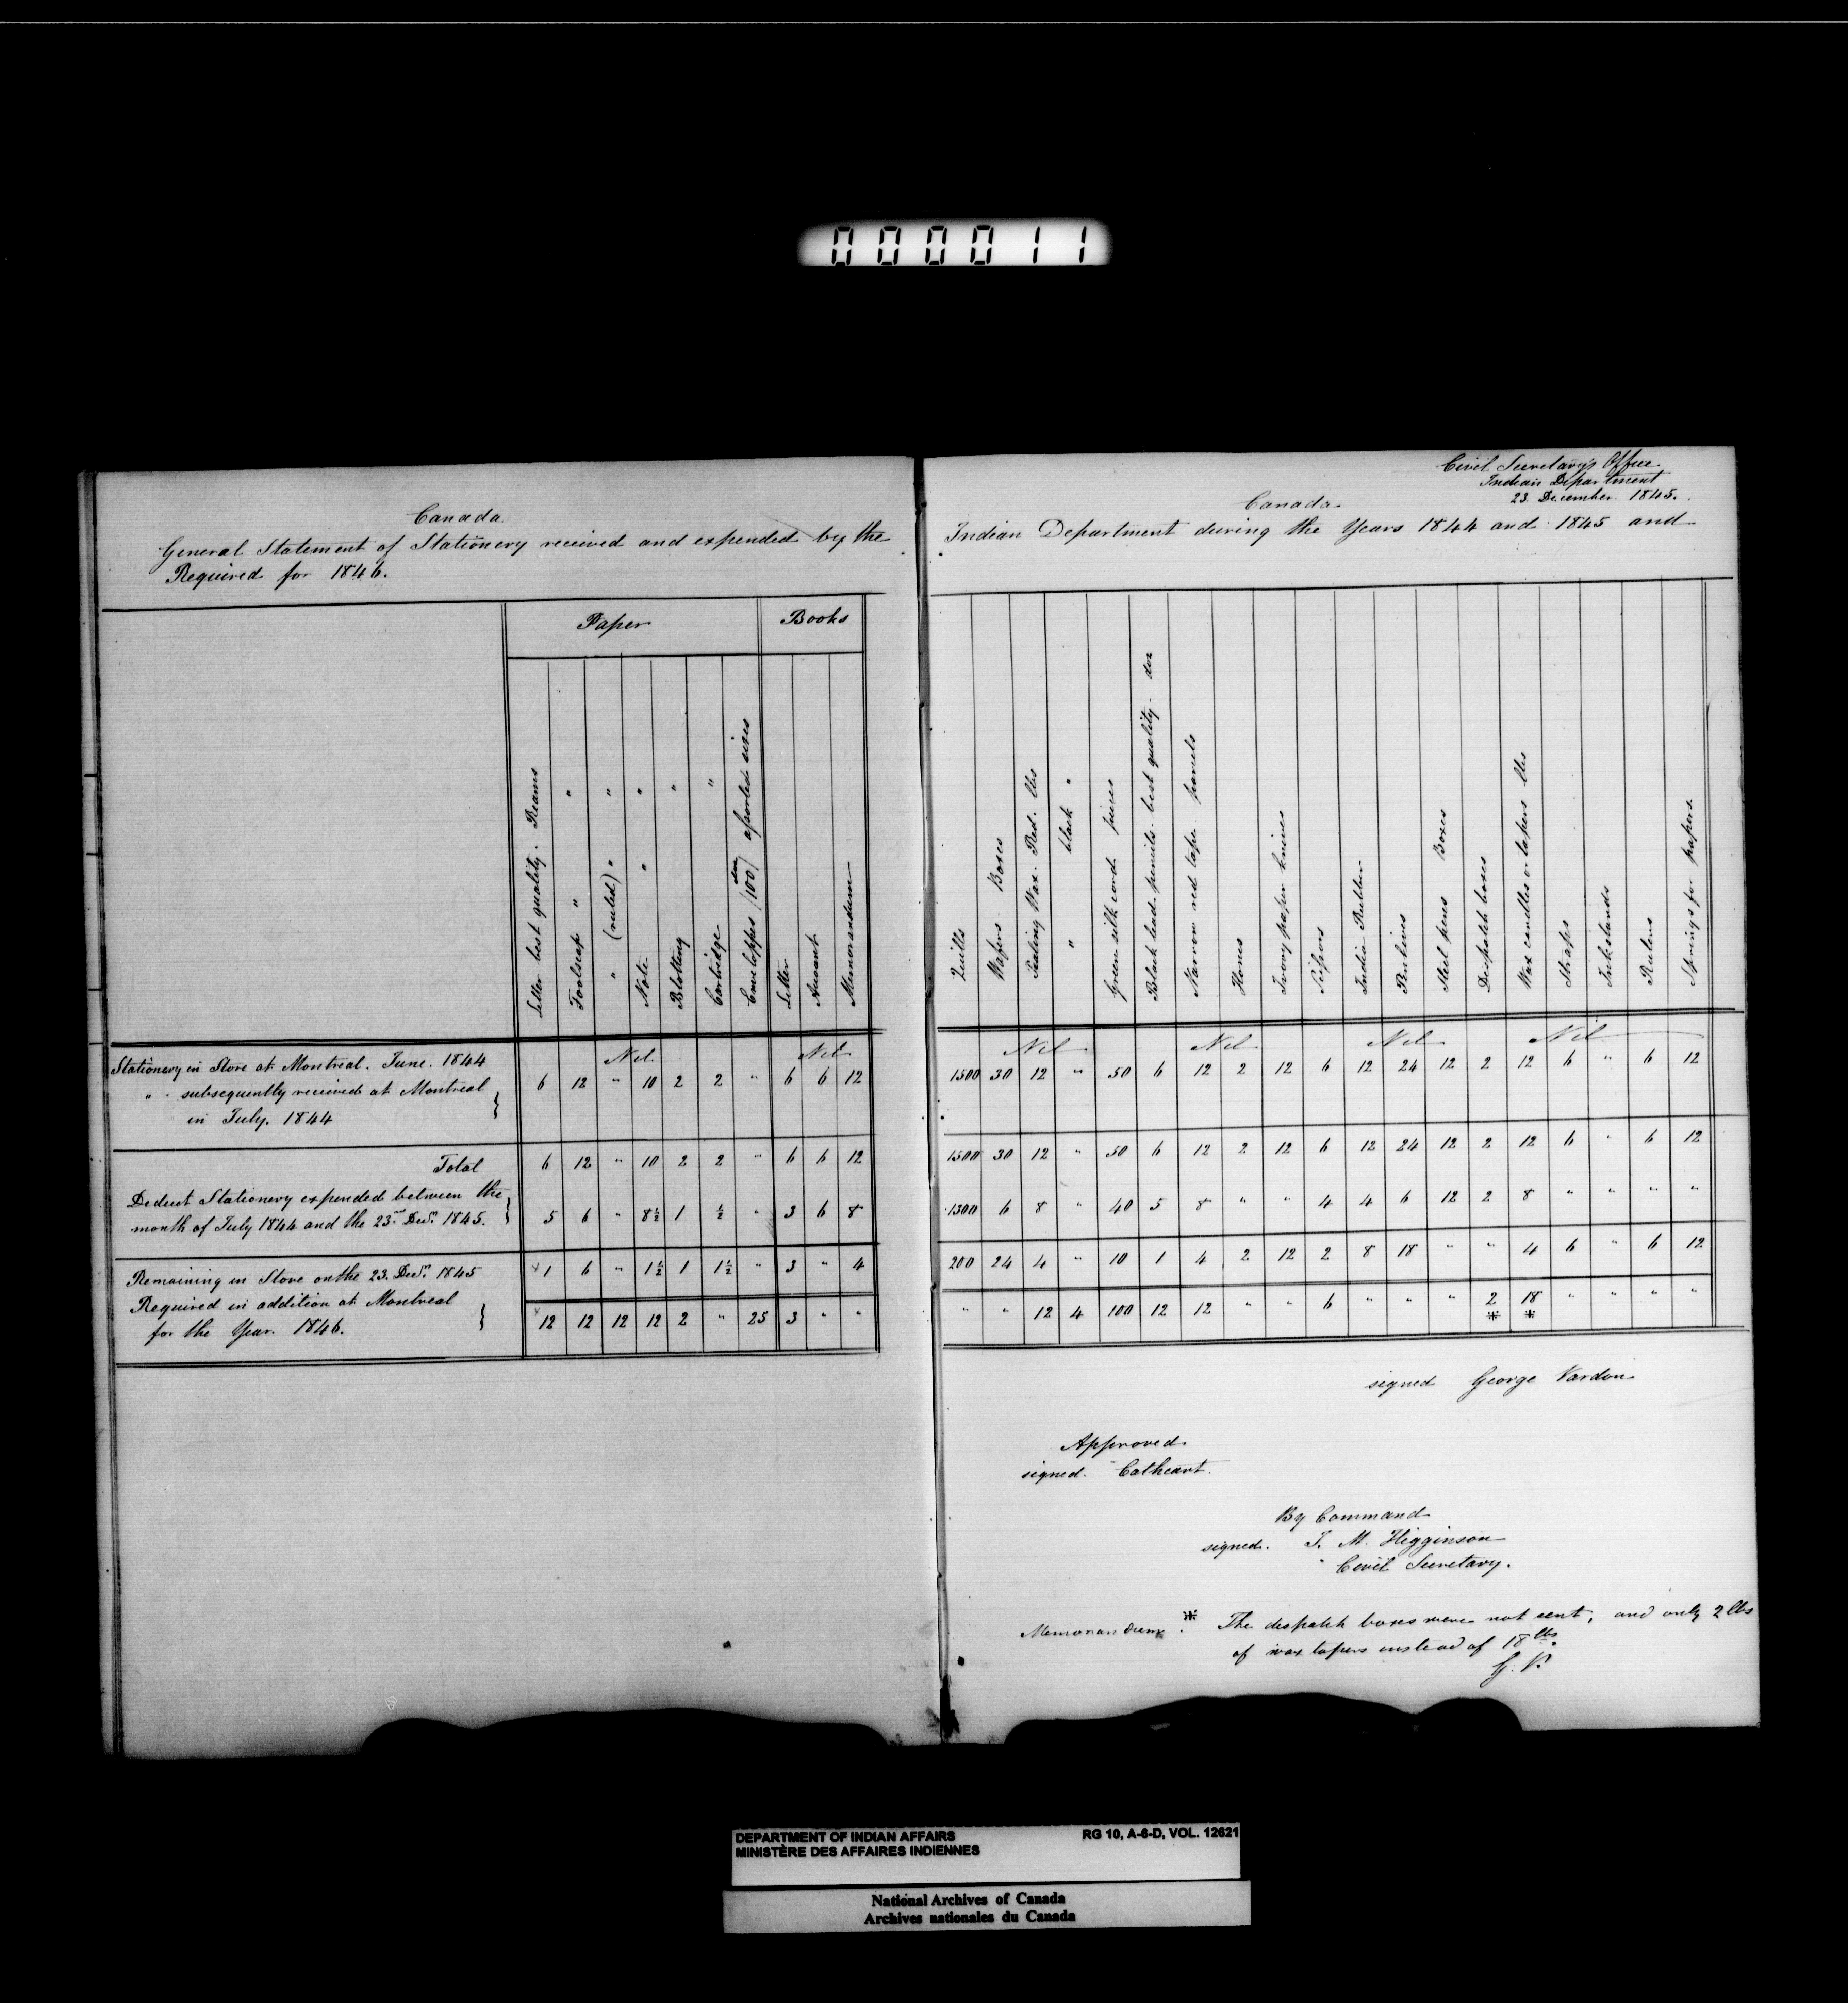 000011
Canada
General Statement of Stationery received and expended by the
Required for 1846.
Paper
Books
Letter best quality. Reams
Foolscap " "
" (ruled) " "
Note " "
Blotting "
Cartridge "
Envelopes (100) doz assorted sizes
Letter
Account
Memorandum
Stationery in Store at Montreal. June. 1844 Nil Nil
" subsequently received at Montreal in July. 1844 } 6 12 " 10 2 2 " 6 6 12
Total 6 12 " 10 2 2 " 6 6 12
Deduct Stationery expended between the
month of July 1844 and the 23rd Decr. 1845. } 5 6 " 8½ 1 ½ " 3 6 8
Remaining in Store on the 23. Decr. 1845 x1 6 " 1½ 1 1½ " 3 " 4
Required in addition at Montreal
for the Year. 1846. } x12 12 12 12 2 " 25 3 " "
Civil Secretary's Office
Indian Department
23 December 1845.
Canada
Indian Department during the Years 1844 and 1845 and
Quills
Wafers Boxes
Sealing Wax. Red. lbs
" black "
Green silk cord pieces
Black lead pencils best quality. doz
Narrow red tape parcels
Hones
Ivory paper knives
Scissors
India Rubber
Penknives
Steel pens Boxes
Despatch boxes
Wax candles or tapers lbs
Straps
Inkstands
Rulers
Springs for papers.
Nil Nil Nil Nil
1500 30 12 " 50 6 12 2 12 6 12 24 12 2 12 6 " 6 12
1500 30 12 " 50 6 12 2 12 6 12 24 12 2 12 6 " 6 12
1300 6 8 " 40 5 8 " " 4 4 6 12 2 8 " " " "
200 24 4 " 10 1 4 2 12 2 8 18 " " 4 6 " 6 12
" " 12 4 100 12 12 " " 6 " " " 2 18 " " " "
* *
signed George Vardon
Approved
signed. Cathcart.
By Command
signed. J. M. Higginson
Civil Secretary.
Memorandum * The despatch boxes were not sent, and only 2 lbs
of wax tapers instead of 18 lbs.
G. V.
DEPARTMENT OF INDIAN AFFAIRS RG 10, A-6-D, VOL. 12621
MINISTÈRE DES AFFAIRES INDIENNES
National Archives of Canada
Archives nationales du Canada